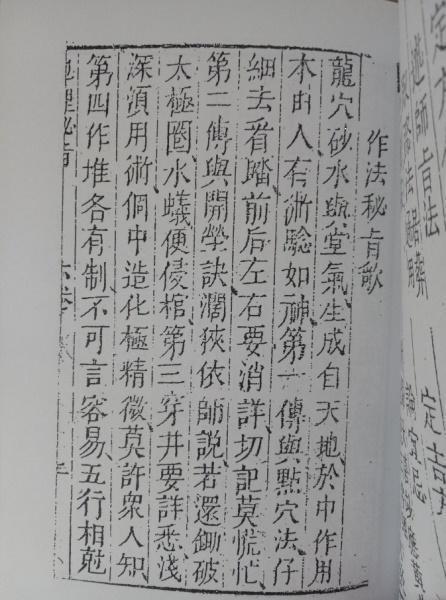 作法秘旨歌
龍穴砂水與堂氣生成自天地於中作用
本由人有術驗如神第一傳與點穴法仔
細去看踏前后左右要消詳切記莫慌忙
第二傳與開塋訣濶狹依師說若還鋤破
太極圈水蟻便侵棺第三穿井要詳悉淺
深須用術個中造化極精微莫許衆人知
第四作堆各有制不可言容易五行相尅
地理秘旨 六卷